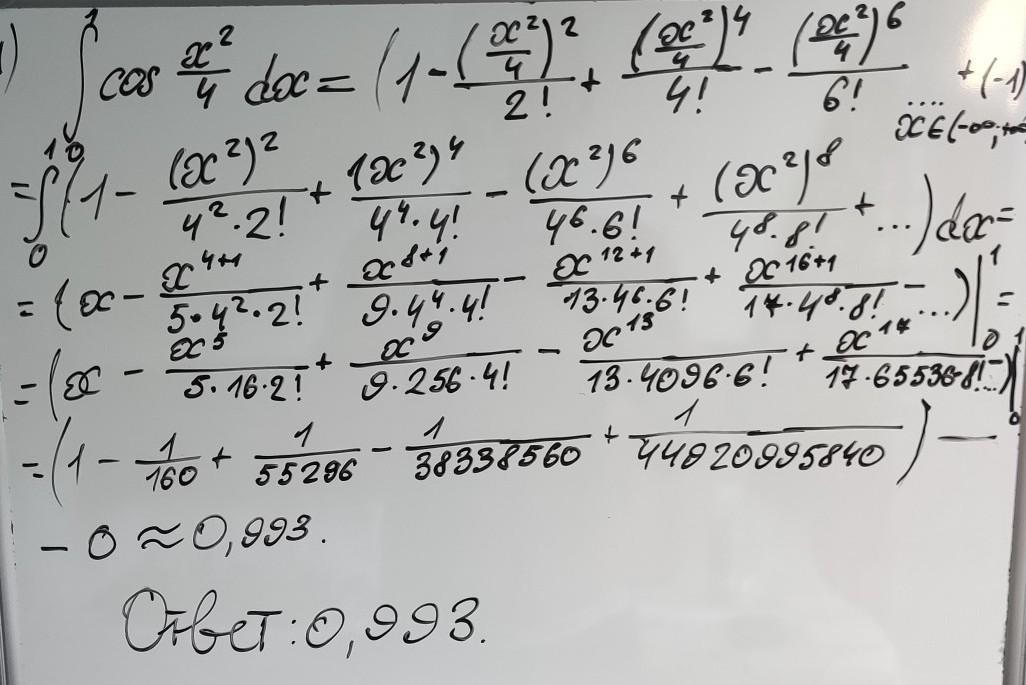 1) ∫₀¹ cos x²/4 dx = (1 - (x²/4)²/2! + (x²/4)⁴/4! - (x²/4)⁶/6! .... + (-1)
x∈(-∞;+∞
= ∫₀¹ (1 - (x²)²/4²·2! + (x²)⁴/4⁴·4! - (x²)⁶/4⁶·6! + (x²)⁸/4⁸·8! + ...) dx =
= (x - x⁴⁺¹/5·4²·2! + x⁸⁺¹/9·4⁴·4! - x¹²⁺¹/13·4⁶·6! + x¹⁶⁺¹/17·4⁸·8! - ...)|₀¹ =
= (x - x⁵/5·16·2! + x⁹/9·256·4! - x¹³/13·4096·6! + x¹⁷/17·65536·8! - ...)|₀¹
= (1 - 1/160 + 1/55296 - 1/38338560 + 1/44920995840) —
- 0 ≈ 0,993.
Ответ: 0,993.